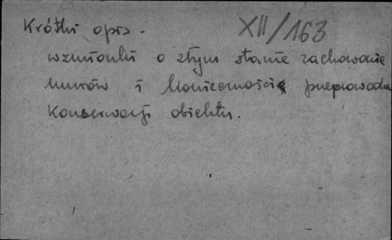 Krótki opis - XII/163
wzmianki o złym stanie zachowania
murów i konieczności przeprowadz
konserwacji obiektu.